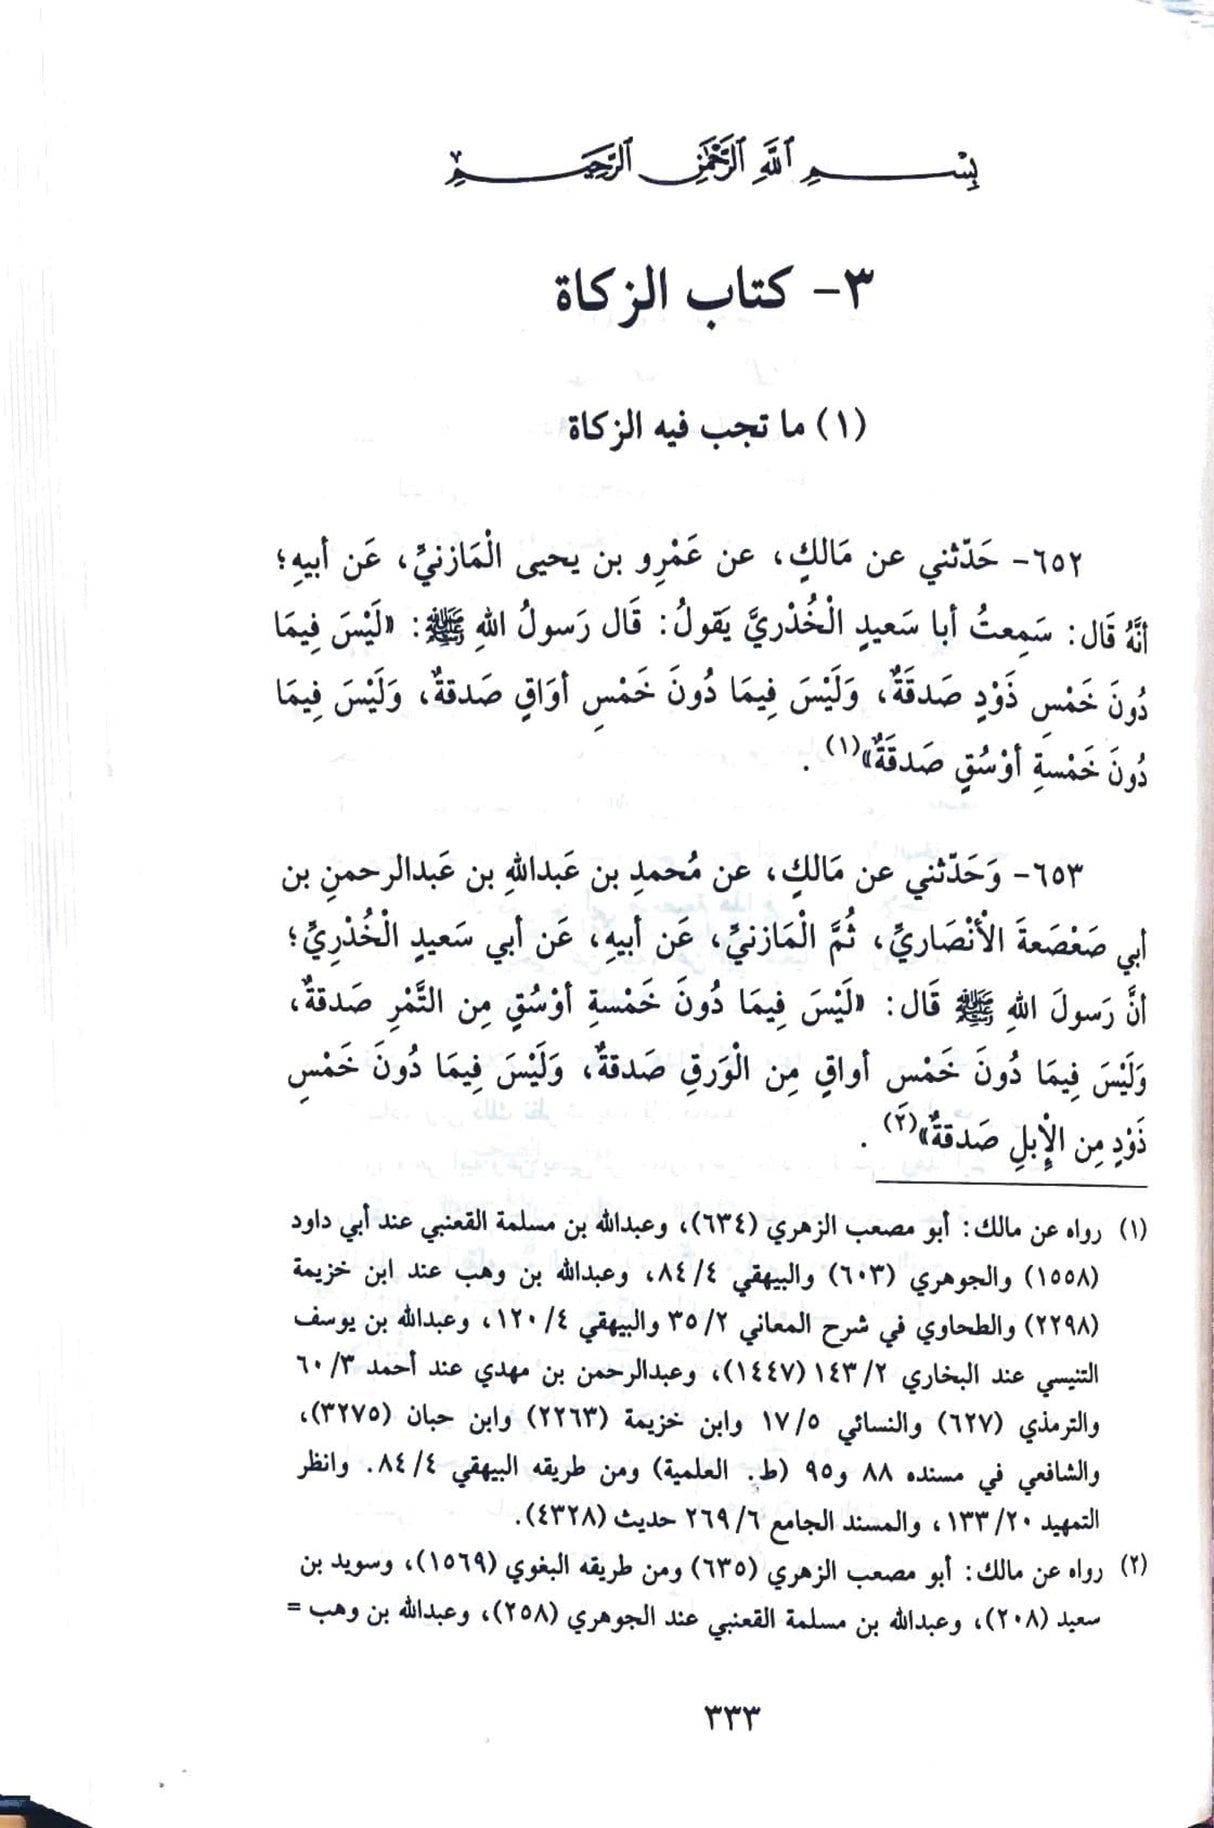 بِسْمِ ٱللَّهِ ٱلرَّحْمَٰنِ ٱلرَّحِيمِ
٣- كتاب الزكاة
(١) ما تجب فيه الزكاة
٦٥٢- حَدّثني عن مَالكٍ، عن عَمْرِو بن يحيى الْمَازنيِّ، عَن أبيهِ؛
أنَّهُ قَال: سَمِعتُ أبا سَعيدٍ الْخُذْريَّ يَقولُ: قَال رَسولُ اللهِ ﷺ: «لَيْسَ فِيمَا
دُونَ خَمْسِ ذَوْدٍ صَدقَةٌ، وَلَيْسَ فِيمَا دُونَ خَمْسِ أوَاقٍ صَدقةٌ، وَلَيْسَ فِيمَا
دُونَ خَمْسةِ أوْسُقٍ صَدقَةٌ»(١) .
٦٥٣- وَحَدّثني عن مَالكٍ، عن مُحمدِ بن عَبداللهِ بن عَبدالرحمنِ بن
أبي صَعْصَعةَ الْأنْصَاريِّ، ثُمَّ الْمَازنيِّ، عَن أبيهِ، عَن أبي سَعيدٍ الْخُذْرِيِّ؛
أنَّ رَسولَ اللهِ ﷺ قَال: «لَيْسَ فِيمَا دُونَ خَمْسةِ أوْسُقٍ مِن التَّمْرِ صَدقةٌ،
وَلَيْسَ فِيمَا دُونَ خَمْسِ أواقٍ مِن الْوَرقِ صَدقةٌ، وَلَيْسَ فِيمَا دُونَ خَمْسِ
ذَوْدٍ مِن الْإبلِ صَدقةٌ»(٢) .
(١) رواه عن مالك: أبو مصعب الزهري (٦٣٤)، وعبدالله بن مسلمة القعنبي عند أبي داود
(١٥٥٨) والجوهري (٦٠٣) والبيهقي ٨٤/٤، وعبدالله بن وهب عند ابن خزيمة
(٢٢٩٨) والطحاوي في شرح المعاني ٣٥/٢ والبيهقي ١٢٠/٤، وعبدالله بن يوسف
التنيسي عند البخاري ١٤٣/٢ (١٤٤٧)، وعبدالرحمن بن مهدي عند أحمد ٦٠/٣
والترمذي (٦٢٧) والنسائي ١٧/٥ وابن خزيمة (٢٢٦٣) وابن حبان (٣٢٧٥)،
والشافعي في مسنده ٨٨ و٩٥ (ط. العلمية) ومن طريقه البيهقي ٨٤/٤. وانظر
التمهيد ١٣٣/٢٠، والمسند الجامع ٢٦٩/٦ حديث (٤٣٢٨).
(٢) رواه عن مالك: أبو مصعب الزهري (٦٣٥) ومن طريقه البغوي (١٥٦٩)، وسويد بن
سعيد (٢٠٨)، وعبدالله بن مسلمة القعنبي عند الجوهري (٢٥٨)، وعبدالله بن وهب =
٣٣٣